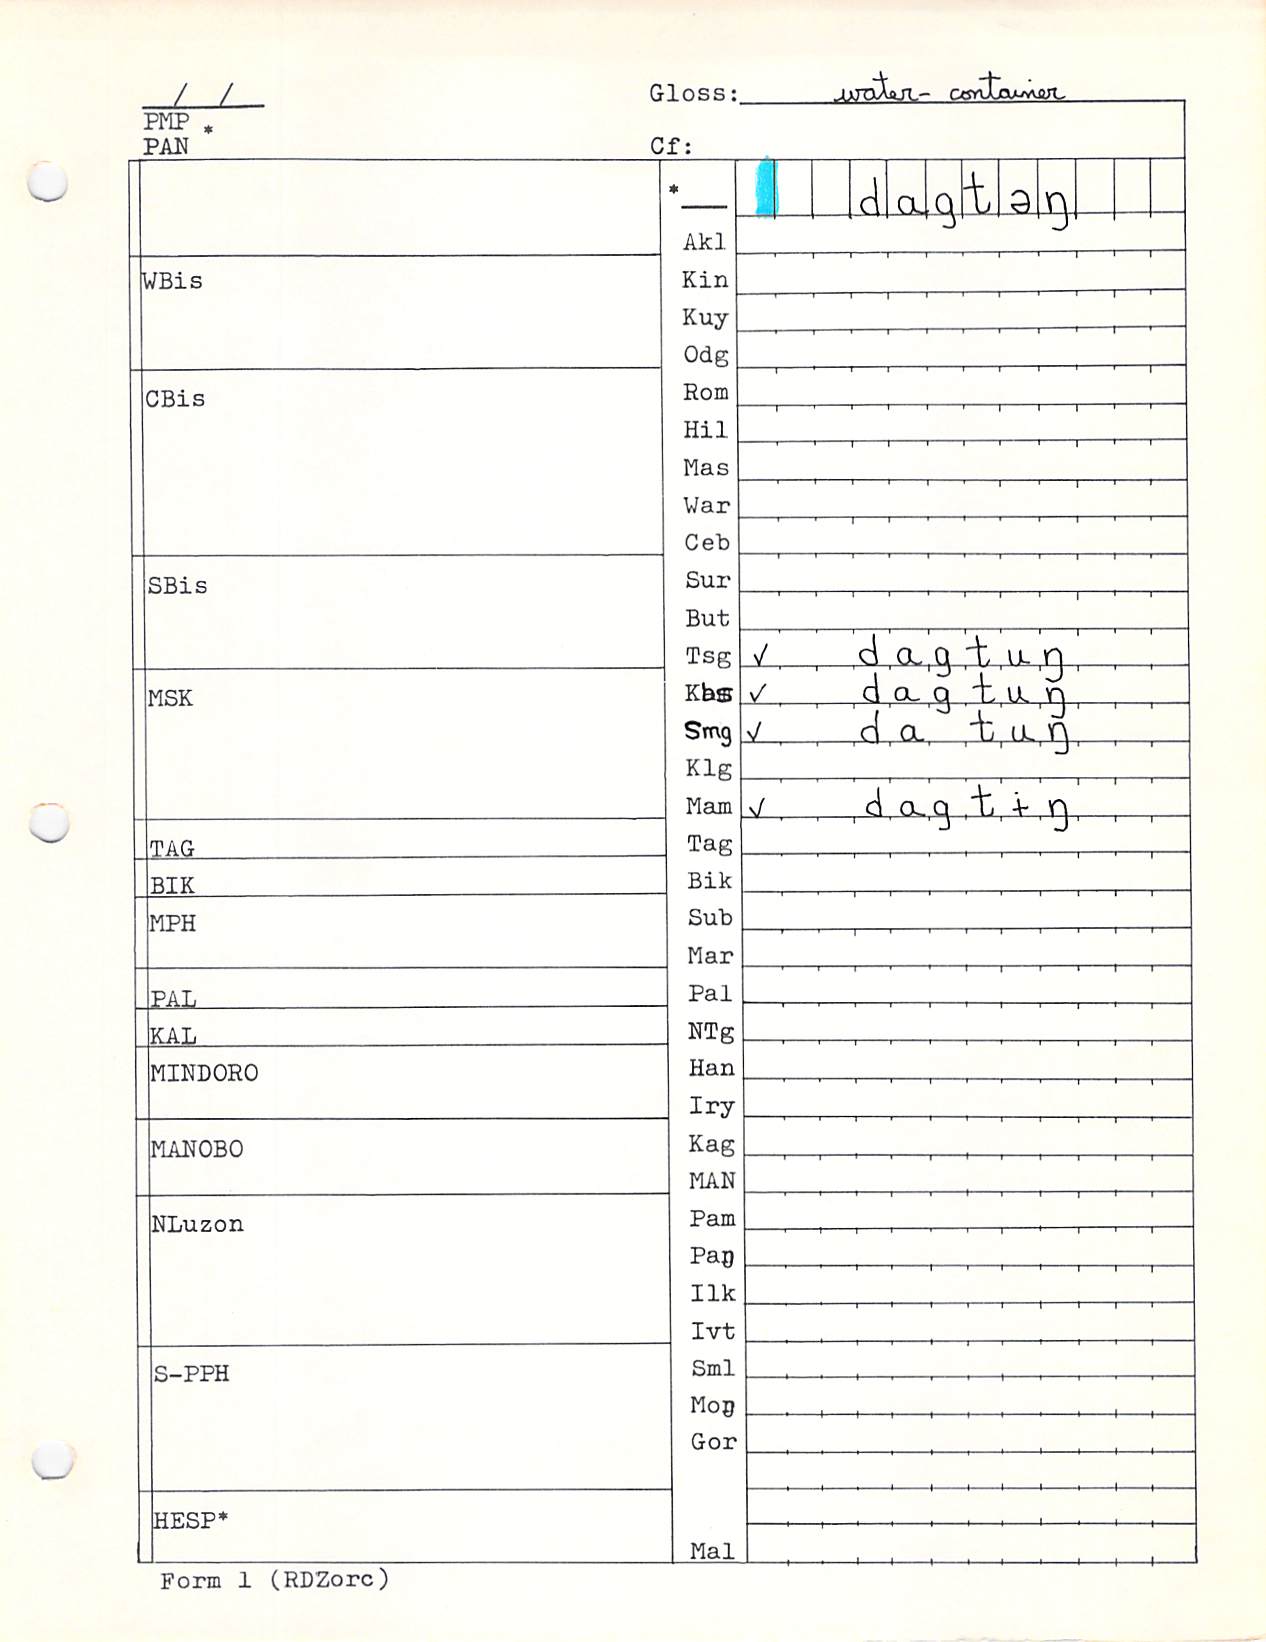 / /
Gloss: water-container
PMP *
PAN
Cf:
*__ dagtəŋ
Akl
WBis
Kin
Kuy
Odg
CBis
Rom
Hil
Mas
War
Ceb
SBis
Sur
But
Tsg ✓ dagtuŋ
MSK
Kbs ✓ dagtuŋ
Smg ✓ da tuŋ
Klg
Mam ✓ dagtɨŋ
TAG
Tag
BIK
Bik
MPH
Sub
Mar
PAL
Pal
KAL
NTg
MINDORO
Han
Iry
MANOBO
Kag
MAN
NLuzon
Pam
Paŋ
Ilk
Ivt
S-PPH
Sml
Moŋ
Gor
HESP*
Mal
Form 1 (RDZorc)